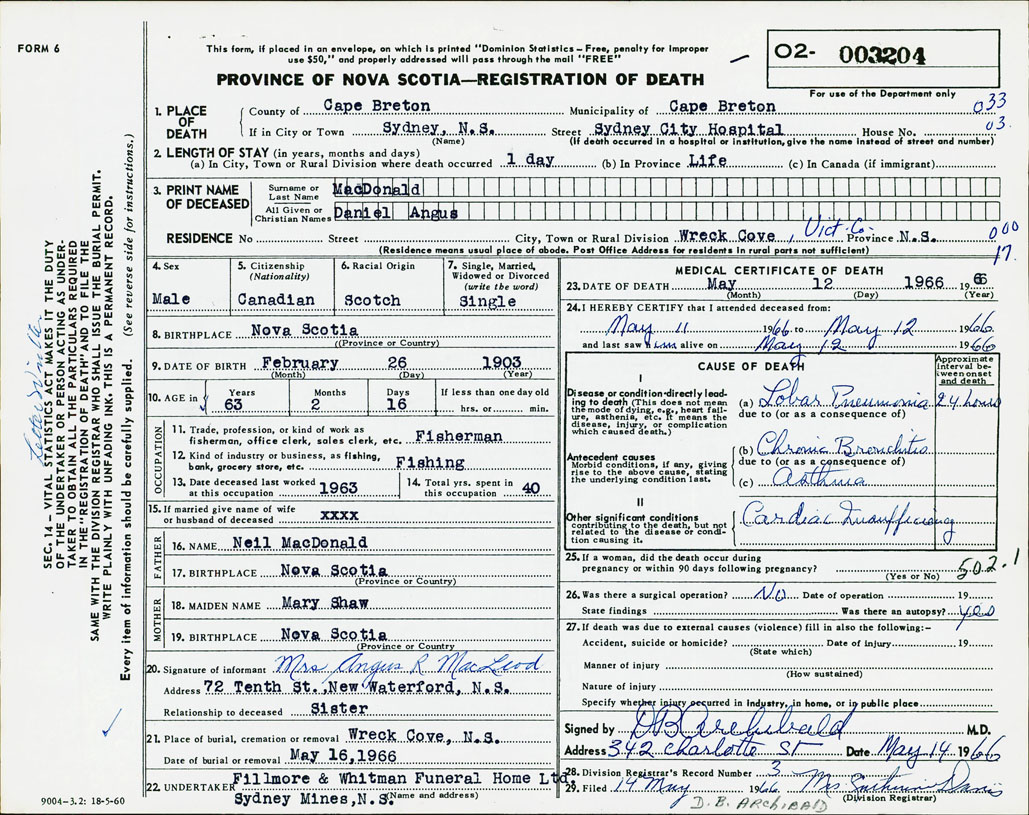 FORM 6
This form, if placed in an envelope, on which is printed "Dominion Statistics – Free, penalty for improper
use $50," and properly addressed will pass through the mail "FREE"
02- 003204
For use of the Department only
PROVINCE OF NOVA SCOTIA—REGISTRATION OF DEATH
033
03.
1. PLACE OF DEATH
County of Cape Breton Municipality of Cape Breton
If in City or Town Sydney, N.S. Street Sydney City Hospital House No.
(Name) (If death occurred in a hospital or institution, give the name instead of street and number)
2. LENGTH OF STAY (in years, months and days)
(a) In City, Town or Rural Division where death occurred 1 day (b) In Province Life (c) In Canada (if immigrant)
3. PRINT NAME OF DECEASED
Surname or Last Name MacDonald
All Given or Christian Names Daniel Angus
RESIDENCE No Street City, Town or Rural Division Wreck Cove, Vict. Co. Province N.S.
(Residence means usual place of abode. Post Office Address for residents in rural parts not sufficient)
000
17.
4. Sex
Male
5. Citizenship
(Nationality)
Canadian
6. Racial Origin
Scotch
7. Single, Married,
Widowed or Divorced
(write the word)
Single
8. BIRTHPLACE Nova Scotia
(Province or Country)
9. DATE OF BIRTH February 26 1903
(Month) (Day) (Year)
10. AGE in
Years 63
Months 2
Days 16
If less than one day old
hrs. or min.
OCCUPATION
11. Trade, profession, or kind of work as
fisherman, office clerk, sales clerk, etc. Fisherman
12. Kind of industry or business, as fishing,
bank, grocery store, etc. Fishing
13. Date deceased last worked
at this occupation 1963
14. Total yrs. spent in
this occupation 40
15. If married give name of wife
or husband of deceased xxxx
FATHER
16. NAME Neil MacDonald
17. BIRTHPLACE Nova Scotia
(Province or Country)
MOTHER
18. MAIDEN NAME Mary Shaw
19. BIRTHPLACE Nova Scotia
(Province or Country)
20. Signature of informant Mrs Angus R MacLeod
Address 72 Tenth St., New Waterford, N.S.
Relationship to deceased Sister
21. Place of burial, cremation or removal Wreck Cove, N.S.
Date of burial or removal May 16,1966
22. UNDERTAKER Fillmore & Whitman Funeral Home Ltd.
Sydney Mines, N.S. (Name and address)
MEDICAL CERTIFICATE OF DEATH
23. DATE OF DEATH May 12 1966 1966
(Month) (Day) (Year)
24. I HEREBY CERTIFY that I attended deceased from:
May 11 1966 to May 12 1966
and last saw him alive on May 12 1966
CAUSE OF DEATH
Approximate
interval be-
tween onset
and death
I
Disease or condition directly lead-
ing to death (This does not mean
the mode of dying, e.g., heart fail-
ure, asthenia, etc. It means the
disease, injury, or complication
which caused death.)
(a) Lobar Pneumonia 24 hours
due to (or as a consequence of)
Antecedent causes
Morbid conditions, if any, giving
rise to the above cause, stating
the underlying condition last.
(b) Chronic Bronchitis
due to (or as a consequence of)
(c) Asthma
II
Other significant conditions
contributing to the death, but not
related to the disease or condi-
tion causing it.
Cardiac Insufficiency
25. If a woman, did the death occur during
pregnancy or within 90 days following pregnancy?
(Yes or No)
502.1
26. Was there a surgical operation? No Date of operation 19
State findings Was there an autopsy? yes
27. If death was due to external causes (violence) fill in also the following:–
Accident, suicide or homicide? Date of injury 19
(State which)
Manner of injury
(How sustained)
Nature of injury
Specify whether injury occurred in Industry, in home, or in public place
Signed by DB Archibald M.D.
Address 342 Charlotte St Date May 14 1966
28. Division Registrar's Record Number 3
29. Filed 14 May 1966 Mrs
(Division Registrar)
D. B. ARCHIBALD
SEC. 14 – VITAL STATISTICS ACT MAKES IT THE DUTY
OF THE UNDERTAKER OR PERSON ACTING AS UNDER-
TAKER TO OBTAIN ALL THE PARTICULARS REQUIRED
IN THE "REGISTRATION OF DEATH" AND TO FILE THE
SAME WITH THE DIVISION REGISTRAR WHO SHALL ISSUE THE BURIAL PERMIT.
WRITE PLAINLY WITH UNFADING INK. THIS IS A PERMANENT RECORD.
Every item of information should be carefully supplied. (See reverse side for instructions.)
9004-3.2: 18-5-60